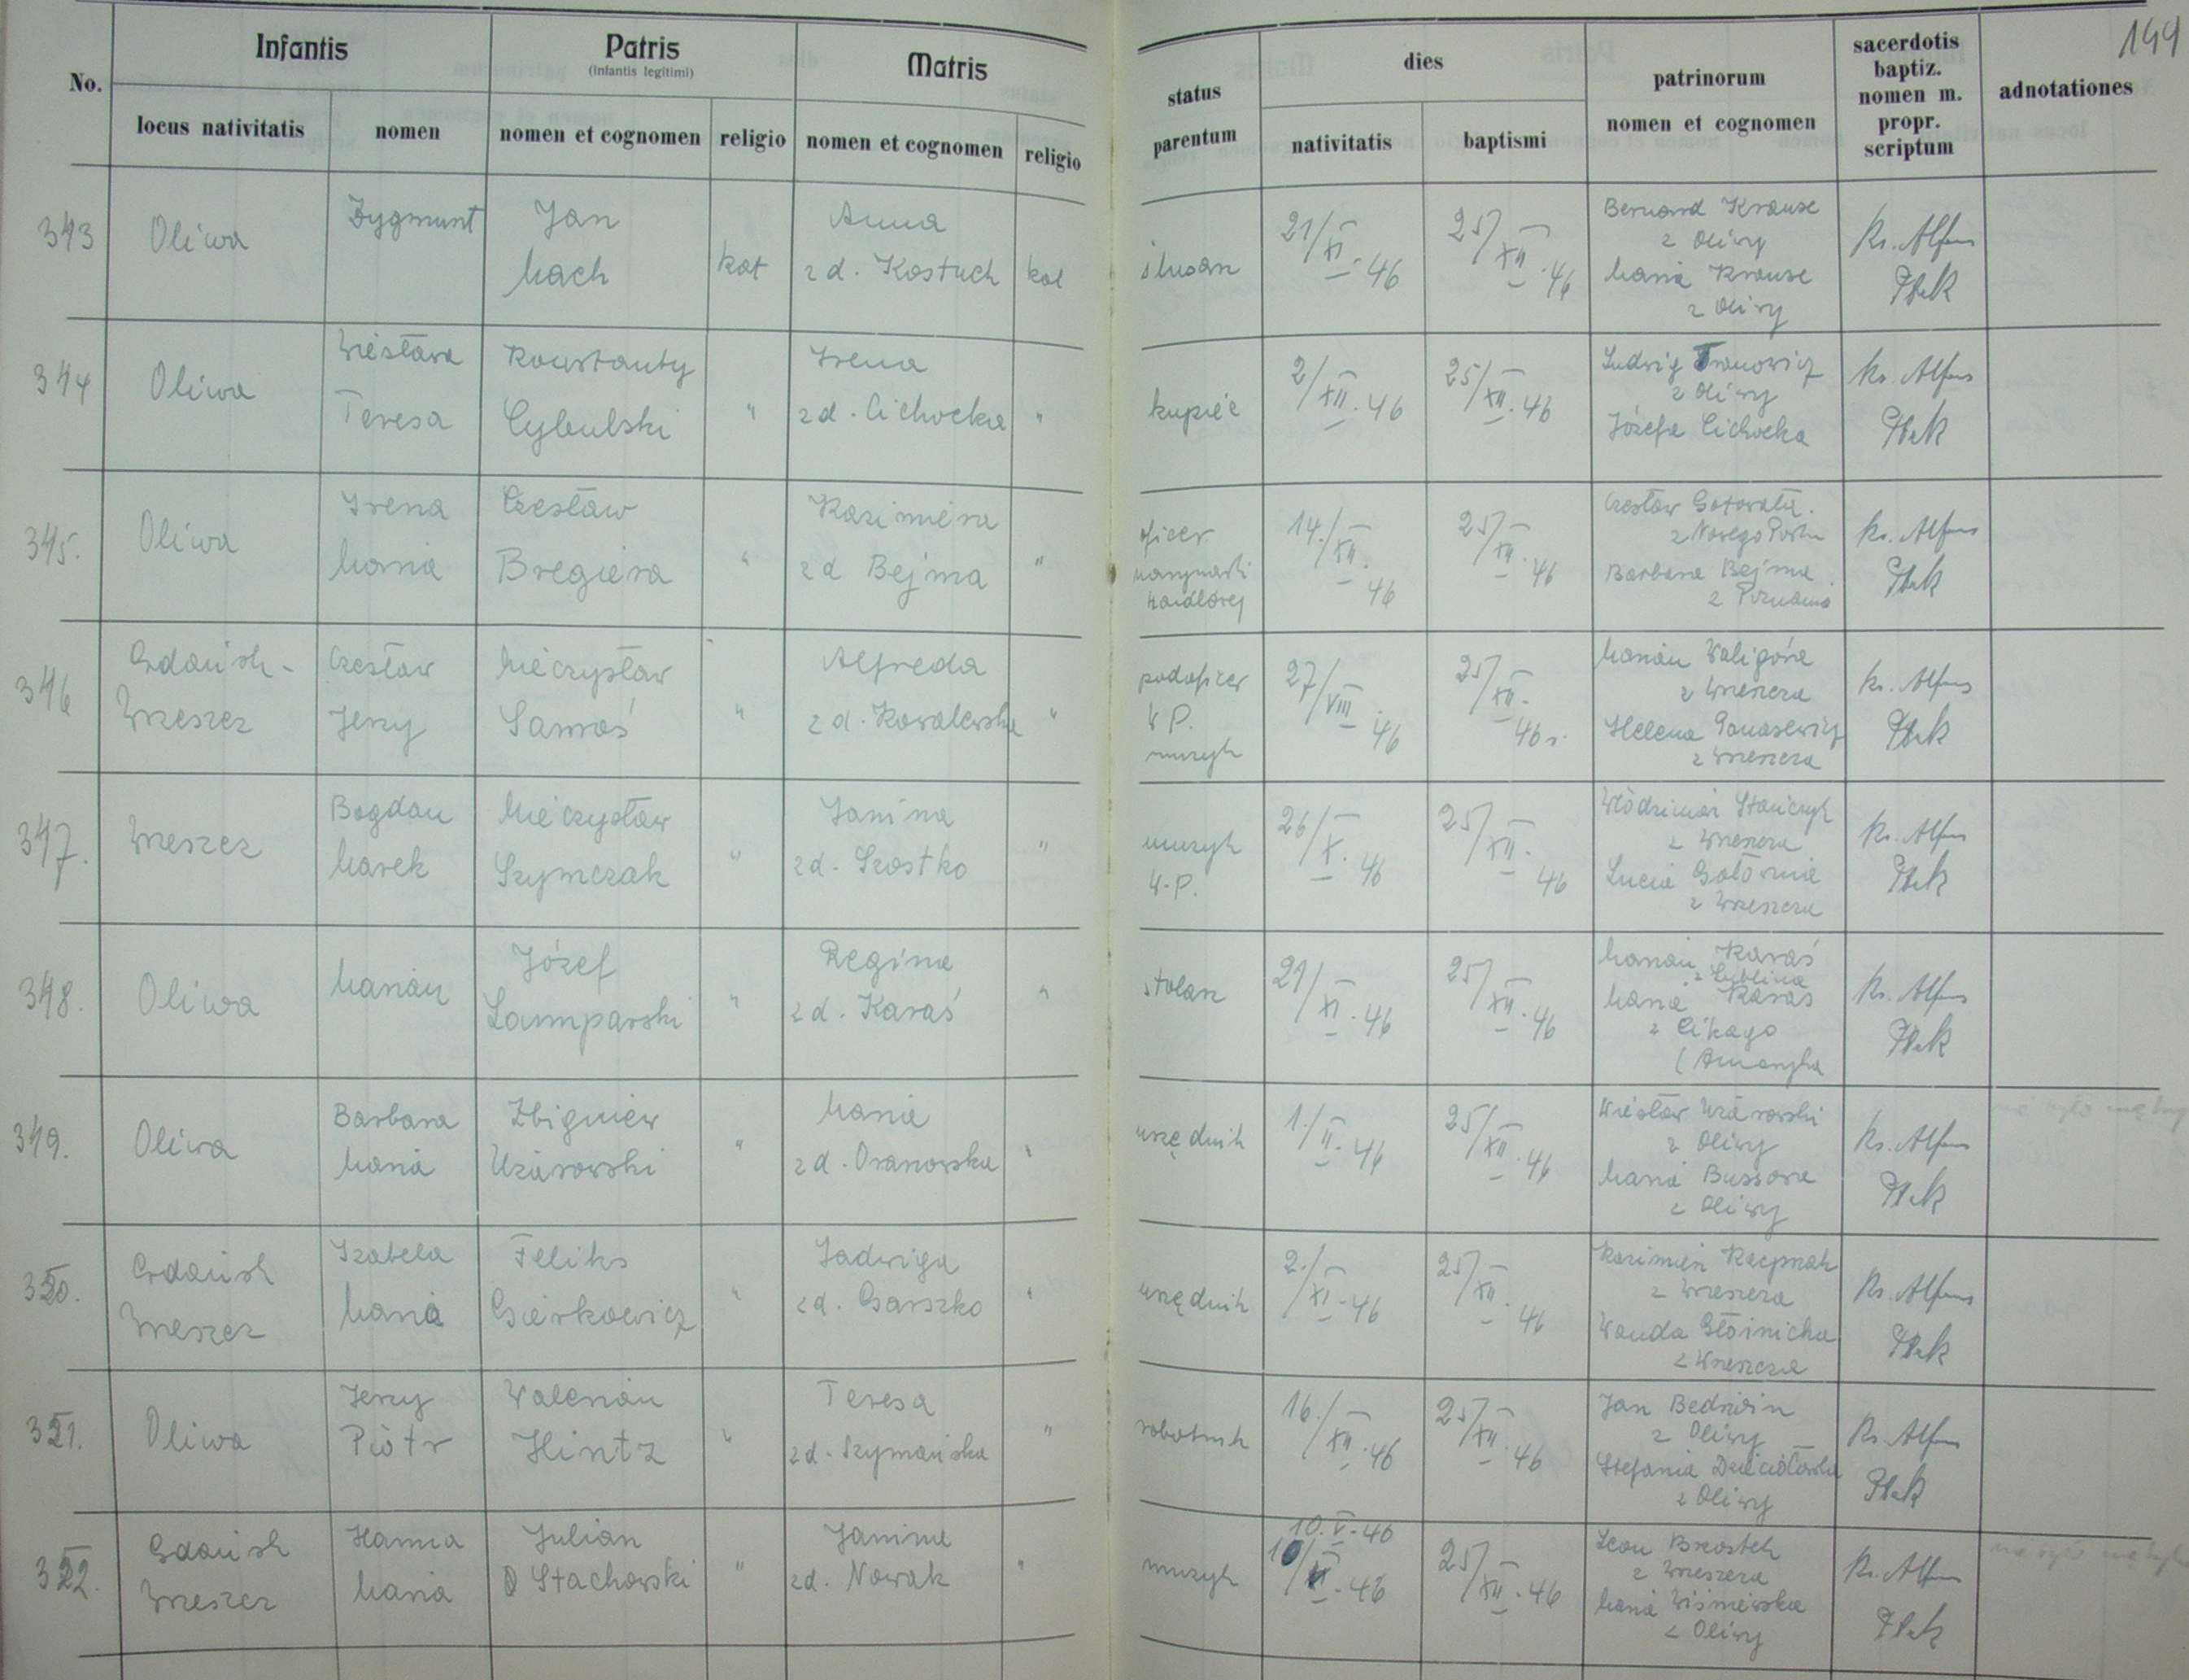 144
Infantis
Patris
(infantis legitimi)
Matris
No.
locus nativitatis
nomen
nomen et cognomen
religio
nomen et cognomen
religio
status
parentum
dies
nativitatis
baptismi
patrinorum
nomen et cognomen
sacerdotis
baptiz.
nomen m.
propr.
scriptum
adnotationes
343
Oliwa
Zygmunt
Jan
Mach
kat
Anna
z d. Kostuch
kat
ślusarz
21/XI.46
25/XII.46
Bernard Krause
z Oliwy
Maria Krause
z Oliwy
Ks. Alfons
344
Oliwa
Wiesława
Teresa
Konstanty
Cybulski
"
Irena
z d. Cichocka
"
kupiec
2/XII.46
25/XII.46
Ludwig
z Oliwy
Józefa Cichocka
Ks. Alfons
345.
Oliwa
Irena
Maria
Czesław
Bregiera
"
Kazimiera
z d Bejma
"
oficer
marynarki
handlowej
14./XII.46
25/XII.46
Czesław
z Nowego Portu
Barbara Bejma
z Poznania
Ks. Alfons
346
Gdańsk-
Wrzeszcz
Czesław
Jerzy
Mieczysław
Samoś
"
Alfreda
z d. Kowalewska
"
podoficer
W P.
muzyk
27/VIII.46
25/XII.46 r.
Marian Waligóra
z Wrzeszcza
Helena
z Wrzeszcza
Ks. Alfons
347.
Wrzeszcz
Bogdan
Marek
Mieczysław
Szymczak
"
Janina
z d. Szostko
"
muzyk
W.P.
26/X.46
25/XII.46
Włodzimierz Stańczyk
z Wrzeszcza
Lucia
z Wrzeszcza
Ks. Alfons
348.
Oliwa
Marian
Józef
Lamparski
"
Regina
z d. Karaś
"
stolarz
21/XI.46
25/XII.46
Marian Karaś
z Lublina
Maria Karaś
z Cikago
(Ameryka
Ks. Alfons
349.
Oliwa
Barbara
Maria
Zbigniew
Uziarowski
"
Maria
z d. Oranowska
"
urzędnik
1./II.46
25/XII.46
Wiesław Uziarowski
z Oliwy
Maria
z Oliwy
Ks. Alfons
350.
Gdańsk
Wrzeszcz
Izabela
Maria
Feliks
Gierkowicz
"
Jadwiga
z d. Garszko
"
urzędnik
2./XI.46
25/XII.46
Kazimierz Rzepnak
z Wrzeszcza
Wanda
z Wrzeszcza
Ks. Alfons
351.
Oliwa
Jerzy
Piotr
Walerian
Hintz
"
Teresa
z d. Szymańska
"
robotnik
16./XII.46
25/XII.46
Jan
z Oliwy
Stefania
z Oliwy
Ks. Alfons
352.
Gdańsk
Wrzeszcz
Hanna
Maria
Julian
Stachowski
"
Janina
z d. Nowak
"
muzyk
10.V.46
25/XII.46
Leon Brzostek
z Wrzeszcza
Maria Wiśniewska
z Oliwy
Ks. Alfons